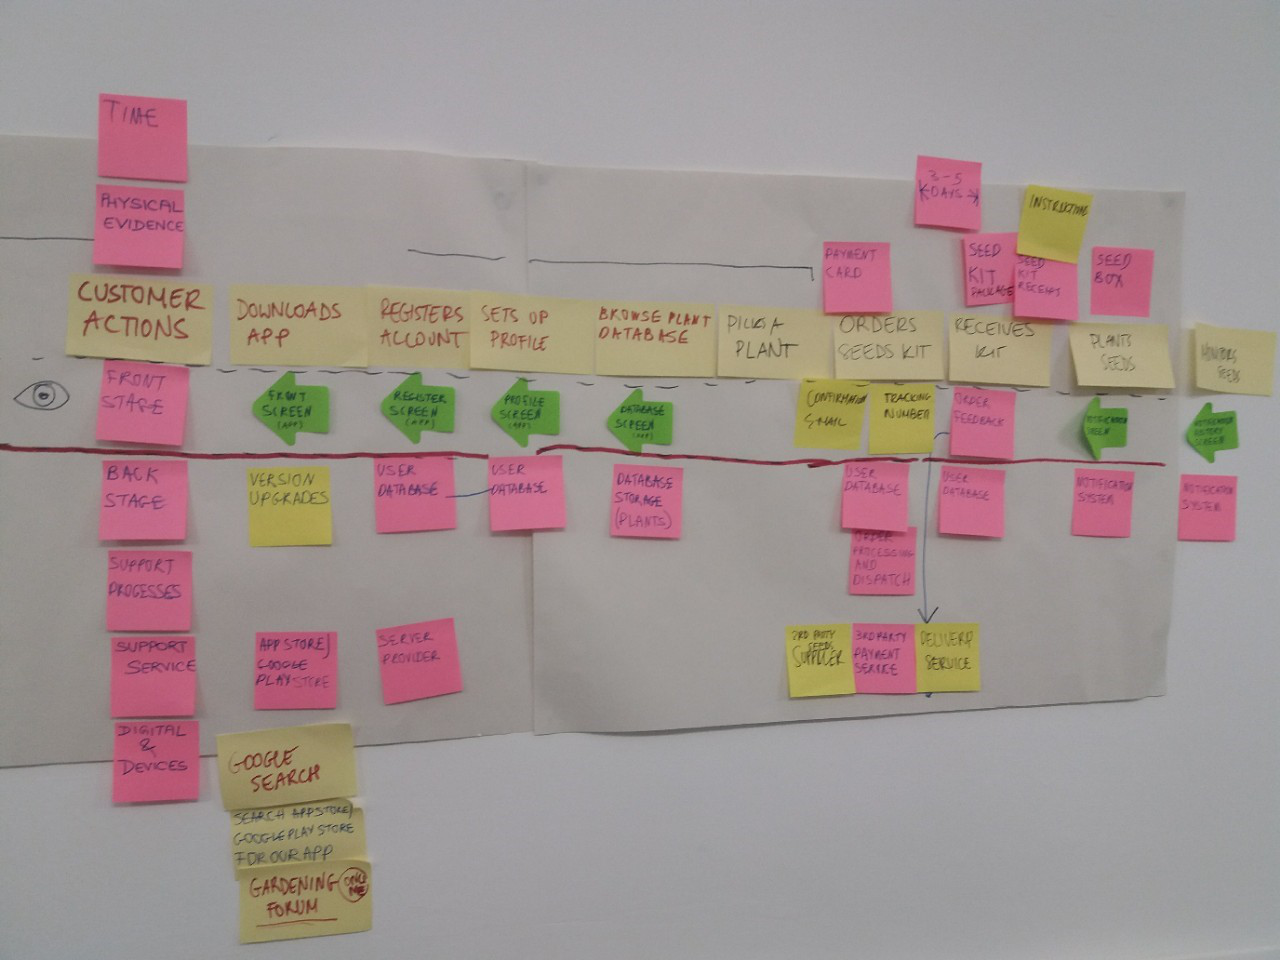 TIME
PHYSICAL
EVIDENCE
3-5
DAYS
INSTRUCTIONS
PAYMENT
CARD
SEED
KIT
PACKAGE
SEED
KIT
RECEIPT
SEED
BOX
CUSTOMER
ACTIONS
DOWNLOADS
APP
REGISTERS
ACCOUNT
SETS UP
PROFILE
BROWSE PLANT
DATABASE
PICKS A
PLANT
ORDERS
SEEDS KIT
RECEIVES
KIT
PLANTS
SEEDS
MONITORS
SEEDS
FRONT
STAGE
FRONT
SCREEN
(APP)
REGISTER
SCREEN
(APP)
PROFILE
SCREEN
(APP)
DATABASE
SCREEN
(APP)
CONFIRMATION
EMAIL
TRACKING
NUMBER
ORDER
FEEDBACK
NOTIFICATION
SCREEN
NOTIFICATION
SCREEN
BACK
STAGE
VERSION
UPGRADES
USER
DATABASE
USER
DATABASE
DATABASE
STORAGE
(PLANTS)
USER
DATABASE
ORDER
PROCESSING
AND
DISPATCH
USER
DATABASE
NOTIFICATION
SYSTEM
NOTIFICATION
SYSTEM
SUPPORT
PROCESSES
SUPPORT
SERVICE
APP STORE/
GOOGLE
PLAY STORE
SERVER
PROVIDER
3RD PARTY
SEEDS
SUPPLIER
3RD PARTY
PAYMENT
SERVICE
DELIVERY
SERVICE
DIGITAL
&
DEVICES
GOOGLE
SEARCH
SEARCH APPSTORE/
GOOGLE PLAY STORE
FOR OUR APP
GARDENING
FORUM